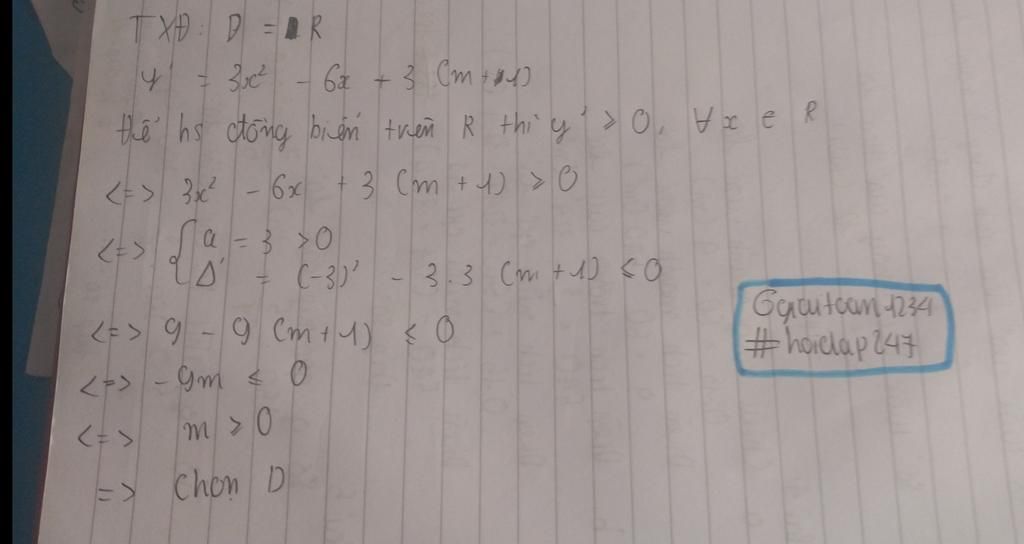 TXĐ: D = R
y' = 3x² - 6x + 3 (m+1)
Để hs đồng biến trên R thì y' ≥ 0, ∀x e R
<=> 3x² - 6x + 3 (m+1) ≥ 0
<=> { a = 3 > 0
Δ' = (-3)' - 3.3 (m+1) ≤ 0
<=> 9 - 9 (m+1) ≤ 0
<=> -9m ≤ 0
<=> m ≥ 0
=> Chọn D
#hoidap247